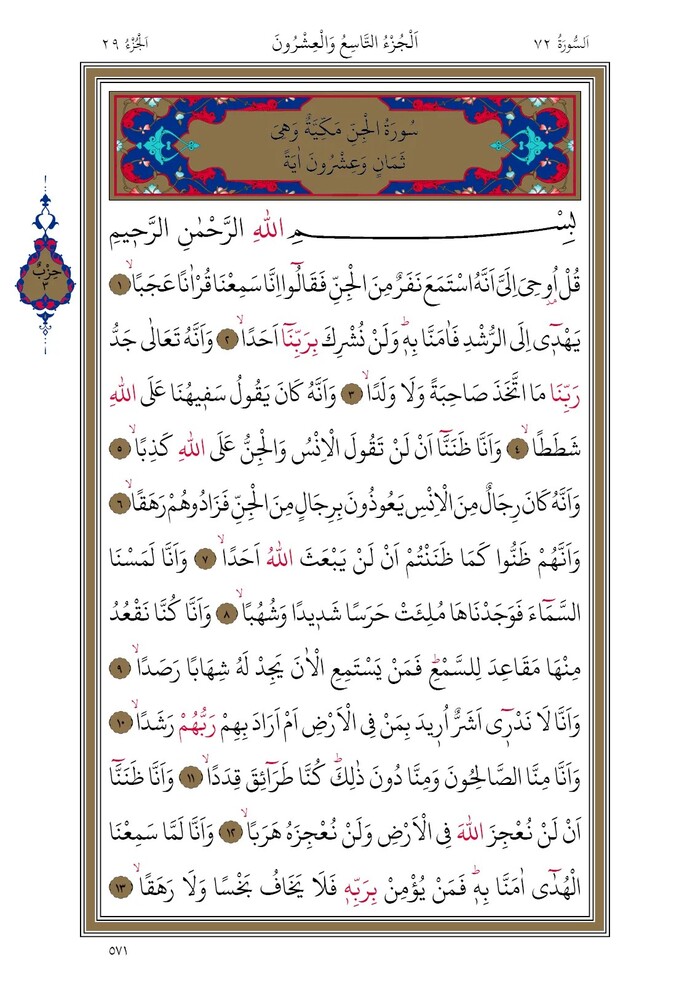 اَلسُّورَةُ ٧٢
اَلْجُزْءُ التَّاسِعُ وَالْعِشْرُونَ
اَلْجُزْءُ ٢٩
سُورَةُ الْجِنِّ مَكِّيَّةٌ وَهِىَ
ثَمَانٍ وَعِشْرُونَ اٰيَةً
حِزْبٌ
٣
بِسْمِ اللّٰهِ الرَّحْمٰنِ الرَّح۪يمِ
قُلْ اُو۫حِىَ اِلَىَّ اَنَّهُ اسْتَمَعَ نَفَرٌ مِنَ الْجِنِّ فَقَالُٓوا اِنَّا سَمِعْنَا قُرْاٰنًا عَجَبًاۙ ﴿١﴾
يَهْد۪ٓى اِلَى الرُّشْدِ فَاٰمَنَّا بِه۪ۜ وَلَنْ نُشْرِكَ بِرَبِّنَٓا اَحَدًاۙ ﴿٢﴾ وَاَنَّهُ تَعَالٰى جَدُّ
رَبِّنَا مَا اتَّخَذَ صَاحِبَةً وَلَا وَلَدًاۙ ﴿٣﴾ وَاَنَّهُ كَانَ يَقُولُ سَف۪يهُنَا عَلَى اللّٰهِ
شَطَطًاۙ ﴿٤﴾ وَاَنَّا ظَنَنَّٓا اَنْ لَنْ تَقُولَ الْاِنْسُ وَالْجِنُّ عَلَى اللّٰهِ كَذِبًاۙ ﴿٥﴾
وَاَنَّهُ كَانَ رِجَالٌ مِنَ الْاِنْسِ يَعُوذُونَ بِرِجَالٍ مِنَ الْجِنِّ فَزَادُوهُمْ رَهَقًاۙ ﴿٦﴾
وَاَنَّهُمْ ظَنُّوا كَمَا ظَنَنْتُمْ اَنْ لَنْ يَبْعَثَ اللّٰهُ اَحَدًاۙ ﴿٧﴾ وَاَنَّا لَمَسْنَا
السَّمَٓاءَ فَوَجَدْنَاهَا مُلِئَتْ حَرَسًا شَد۪يدًا وَشُهُبًاۙ ﴿٨﴾ وَاَنَّا كُنَّا نَقْعُدُ
مِنْهَا مَقَاعِدَ لِلسَّمْعِۜ فَمَنْ يَسْتَمِعِ الْاٰنَ يَجِدْ لَهُ شِهَابًا رَصَدًاۙ ﴿٩﴾
وَاَنَّا لَا نَدْر۪ٓى اَشَرٌّ اُر۪يدَ بِمَنْ فِى الْاَرْضِ اَمْ اَرَادَ بِهِمْ رَبُّهُمْ رَشَدًاۙ ﴿١٠﴾
وَاَنَّا مِنَّا الصَّالِحُونَ وَمِنَّا دُونَ ذٰلِكَۜ كُنَّا طَرَٓائِقَ قِدَدًاۙ ﴿١١﴾ وَاَنَّا ظَنَنَّٓا
اَنْ لَنْ نُعْجِزَ اللّٰهَ فِى الْاَرْضِ وَلَنْ نُعْجِزَهُ هَرَبًاۙ ﴿١٢﴾ وَاَنَّا لَمَّا سَمِعْنَا
الْهُدٰٓى اٰمَنَّا بِه۪ۜ فَمَنْ يُؤْمِنْ بِرَبِّه۪ فَلَا يَخَافُ بَخْسًا وَلَا رَهَقًاۙ ﴿١٣﴾
٥٧١